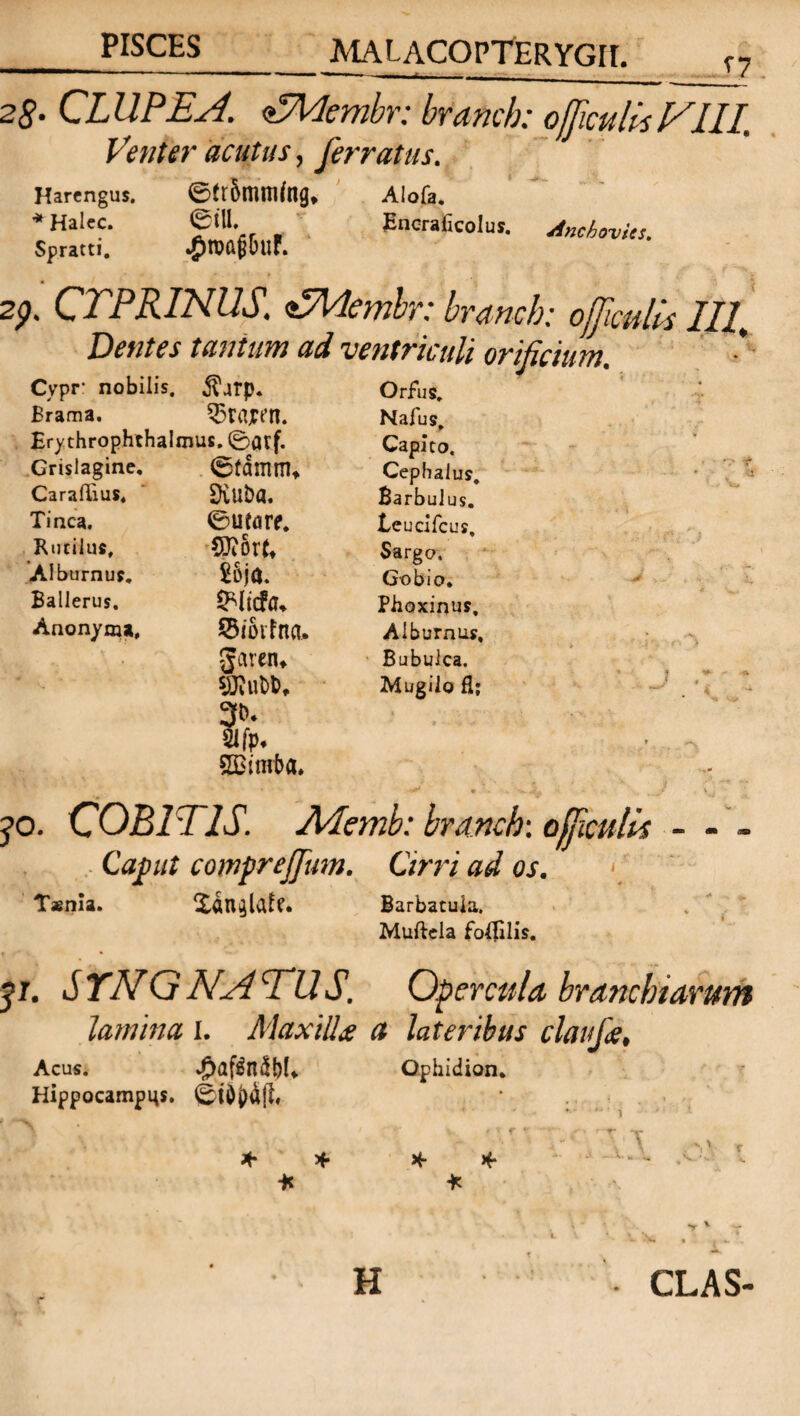 PISCES MALACOPTERYGII. 57
28. CLUPEA. Membr: branch: officulis VIII.
Venter acutus, ſerratus.
Harengus. Strömming, Aloſa.
* Halec. Sill. Encraſicolus. Anchovies.
Spratti. Hwaßbuk.
29. CYPRINUS. Membr: branch: officulis III.
Dentes tantum ad ventriculi orificium.
Cypr: nobilis. Karp. Orfus.
Brama. Braxen. Naſus.
Erythrophthalmus. Sarf. Capito.
Grislagine. Stämm, Cephalus.
Caraſſius. Ruda. Barbulus.
Tinca. Sutare. Leuciſcus.
Rutilus. Mört, Sargo.
Alburnus. Löja. Gobio.
Ballerus. Blicka. Phoxinus.
Anonyma, Biörkna. Alburnus,
Faren. Bubulca.
Mudd, Mugilo fl;
Id.
Aſp.
Wimba.
30. COBITIS. Memb: branch: officulis - - -
Caput compreſſum. Cirri ad os.
Tænia. Tånglake. Barbatula.
Muſtela foſſilis.
31. SYNGNATUS. Opercula branchiarum
lamina 1. Maxillæ a lateribus clauſæ.
Acus. Hafsnåhl. Ophidion.
Hippocampus. Siöhäſt,
* * * *
* *
H CLAS-